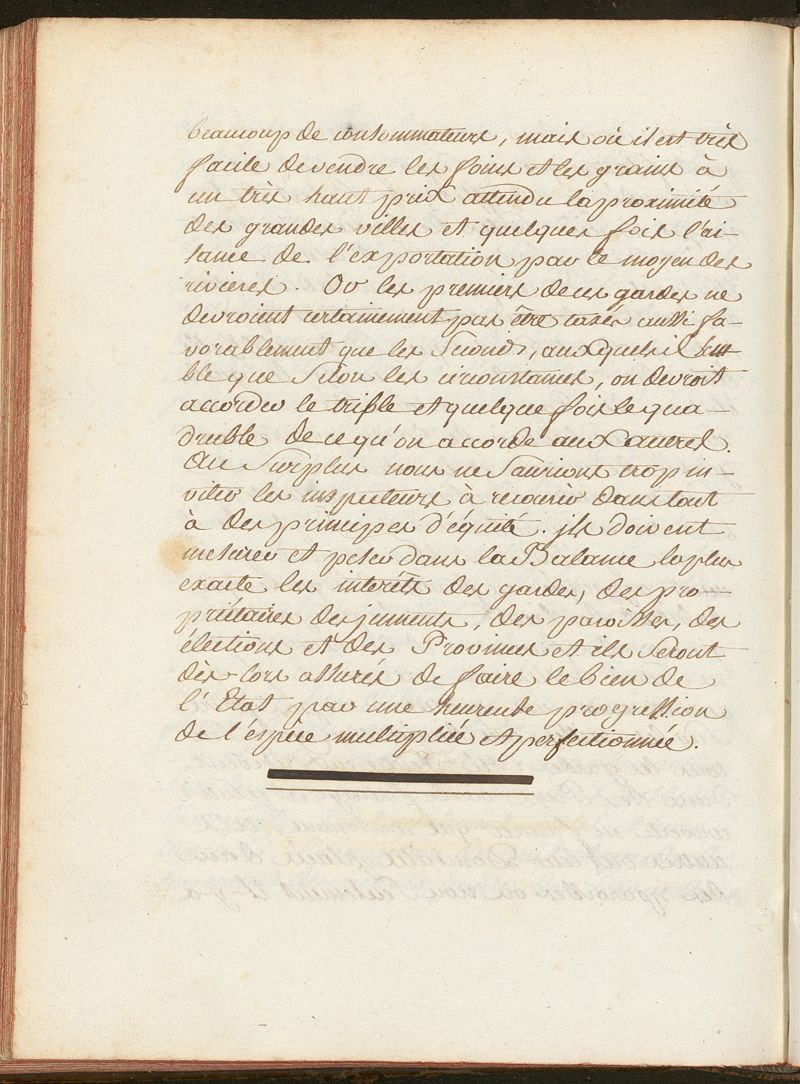 beaucoup de consommateurs, mais où il est très
facile de vendre les foins et les grains à
un très haut prix attendu la proximité
des grandes villes et quelques fois l'ai-
sance de l'exportation par le moyen des
rivieres. Or les premiers de ces gardes ne
devroient certainement pas être taxés aussi fa-
vorablement que les Seconds, auxquels il Sem-
ble que Selon les circonstances, on devroit
accorder le triple et quelque fois le qua-
druble de ce qu'on accorde aux autres.
Au Surplus nous ne Saurions trop in-
viter les inspecteurs à recourir dans tout
à des principes d'équité. jls doivent
mesurer et peser dans la Balance la plus
exacte les interêts des gardes, des pro-
priétaires des juments, des paroisses, des
élections et des Provinces et ils Seront
dès-lors assurés de faire le bien de
l'Etat par une heureuse progression
de l'éspéce multipliée et perfectionnée.